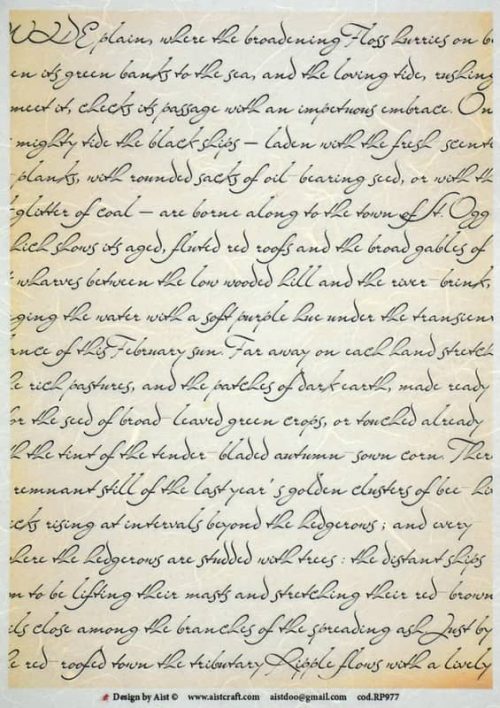 WIDE plain, where the broadening Floss hurries on b
en its green banks to the sea, and the loving tide, rushing
meet it, checks its passage with an impetuous embrace. On
mighty tide the black ships — laden with the fresh-scente
planks, with rounded sacks of oil-bearing seed, or with th
glitter of coal — are borne along to the town of St. Ogg
hich shows its aged, fluted red roofs and the broad gables of
wharves between the low wooded hill and the river-brink,
ging the water with a soft purple hue under the transien
ance of this February sun. Far away on each hand stretch
e rich pastures, and the patches of dark earth, made ready
or the seed of broad-leaved green crops, or touched already
h the tint of the tender-bladed autumn-sown corn. Ther
remnant still of the last year's golden clusters of bee-hi
cks rising at intervals beyond the hedgerows; and every
here the hedgerows are studded with trees: the distant ships
m to be lifting their masts and stretching their red-brown
ls close among the branches of the spreading ash. Just by
e red-roofed town the tributary Ripple flows with a lively
Design by Aist © www.aistcraft.com aistdoo@gmail.com cod.RP977